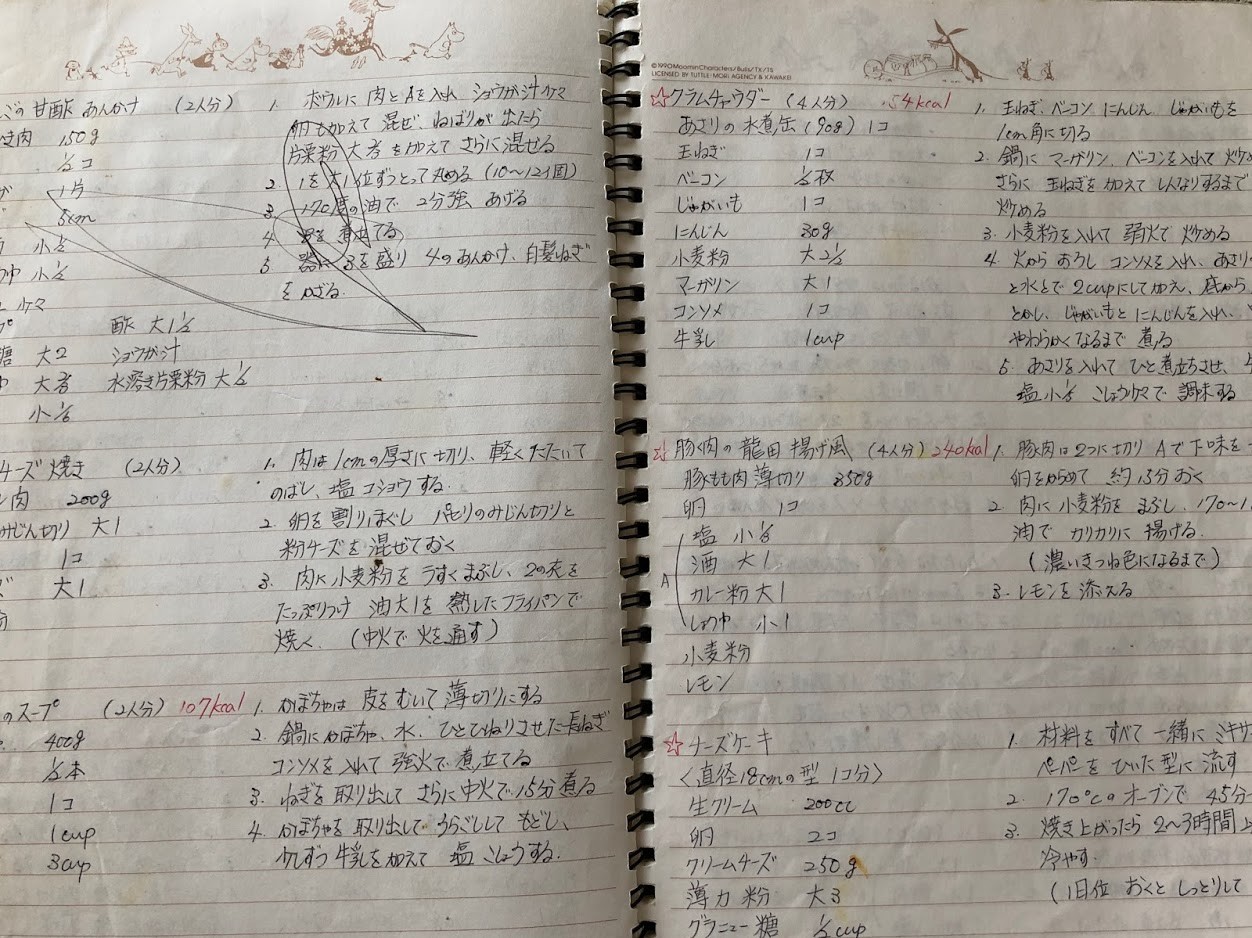 甘酢あんかけ (2人分)
き肉 150g
1/2コ
1片
5cm
小1/2
小1/2
ケマ
酢 大1 1/2
糖 大2 ショウガ汁
水溶き片栗粉 大1/2
小1/2
1. ボウルに 肉とAを入れ ショウガ汁ケマ
卵も加えて 混ぜ、ねばりが出たら
片栗粉 大 を加えて さらに混ぜる
2. 1を大1位ずつとって丸める (10〜12個)
3. 170度の油で 2分強 あげる
4. を煮立てる
5. 器に 3を盛り 4のあんかけ、白髪ねぎ
をかざる.
チーズ焼き (2人分)
肉 200g
みじん切り 大1
1コ
大1
1. 肉は1cmの厚さに切り、軽くたたいて
のばし、塩コショウする.
2. 卵を割りほぐし パセリのみじん切りと
粉チーズを混ぜておく
3. 肉に小麦粉をうすくまぶし、2の衣を
たっぷりつけ 油大1を熱したフライパンで
焼く. (中火で火を通す)
のスープ (2人分) 107kcal
400g
1/2本
1コ
1cup
3cup
1. かぼちゃは 皮をむいて 薄切りにする
2. 鍋にかぼちゃ、水、ひとひねりさせた長ねぎ
コンソメを入れて 強火で煮立てる
3. ねぎを取り出して さらに中火で15分煮る
4. かぼちゃを取り出して うらごしして もどし、
少しずつ 牛乳を加えて 塩 こしょうする.
©1990 MoominCharacters/Bulls/TX/TS
LICENSED BY TUTTLE-MORI AGENCY & KAWAKEI
☆クラムチャウダー (4人分) 54kcal
あさりの水煮缶 (90g) 1コ
玉ねぎ 1コ
ベーコン 1/2枚
じゃがいも 1コ
にんじん 30g
小麦粉 大2 1/2
マーガリン 大1
コンソメ 1コ
牛乳 1cup
1. 玉ねぎ、ベーコン にんじん じゃがいもを
1cm角に切る
2. 鍋に マーガリン、ベーコンを入れて 炒め
さらに 玉ねぎを加えて しんなりするまで
炒める
3. 小麦粉を入れて 弱火で 炒める
4. 火から おろし コンソメを入れ、あさり
と水とで 2cupにして加え、底から
とかし、じゃがいもと にんじんを入れ、
やわらかくなるまで 煮る
5. あさりを入れて ひと煮立ちさせ、
塩小1/5 こしょうケマで 調味する
☆豚肉の龍田揚げ風 (4人分) 240kcal
豚もも肉薄切り 350g
卵 1コ
A
塩 小1/5
酒 大1
カレー粉 大1
しょうゆ 小1
小麦粉
レモン
1. 豚肉は2つに切り Aで下味を
卵をからめて 約15分おく
2. 肉に 小麦粉を まぶし、170〜
油で カリカリに揚げる.
(濃いきつね色になるまで)
3. レモンを添える
☆チーズケーキ
〈直径18cmの型 1コ分〉
生クリーム 200cc
卵 2コ
クリームチーズ 250g
薄力粉 大3
グラニュー糖 1/2cup
1. 材料をすべて 一緒に ミキサ
ペーパーをひいた型に流す
2. 170℃のオーブンで 45分
3. 焼き上がったら 2〜3時間
冷やす.
(1日位 おくと しっとりして